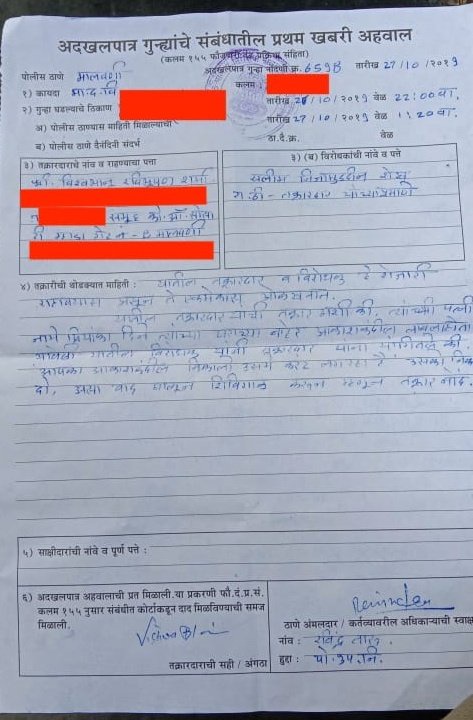 अदखलपात्र गुन्ह्यांचे संबंधातील प्रथम खबरी अहवाल
(कलम १५५ फौजदारी प्रक्रिया संहिता)
पोलीस ठाणे मालवणी अदखलपात्र गुन्हा नोंदणी क्र. 659B तारीख 27/10/2019
१) कायदा भा.द.वि कलम :
२) गुन्हा घडल्याचे ठिकाण तारीख 26/10/2019 वेळ 22:00 वा.
अ) पोलीस ठाण्यास माहिती मिळाल्याची तारीख 27/10/2019 वेळ 1:20 वा.
ब) पोलीस ठाणे दैनंदिनी संदर्भ ठा.दै.क्र. वेळ
३) तक्रारदाराचे नांव व राहण्याचा पत्ता
श्री. विश्वभान रविभूषण शर्मा
समूह को.ऑ. सोसा
मालवणी
३) (ब) विरोधकांची नांवे व पत्ते
सलीम निजामुद्दीन शेख
रा. ठी - तक्रारदार यांच्याप्रमाणे
४) तक्रारीची थोडक्यात माहिती : यातील तक्रारदार व विरोधक हे शेजारी
राहावयास असून ते एकमेकांस ओळखतात.
यातील तक्रारदार यांची तक्रार अशी की, त्यांच्या पत्नी
नामे प्रियांका हिने त्यांच्या घराच्या बाहेर आकाशकंदील लावलेला होता
यातील विरोधक यांनी तक्रारदार यांना सांगितले की,
आपका आकाशकंदील निकालो उसमे करंट लग रहा है उसको निकाल
दो, असा वाद घालून शिवीगाळ केली म्हणून तक्रार नोंद.
५) साक्षीदारांची नांवे व पूर्ण पत्ते :
६) अदखलपात्र अहवालाची प्रत मिळाली. या प्रकरणी फौ.दं.प्र.सं.
कलम १५५ नुसार संबंधीत कोर्टाकडून दाद मिळविण्याची समज
मिळाली.
तक्रारदाराची सही / अंगठा
ठाणे अंमलदार / कर्तव्यावरील अधिकाऱ्याची स्वाक्ष
नांव : रविंद्र
हुद्दा : पो.उप.नि.